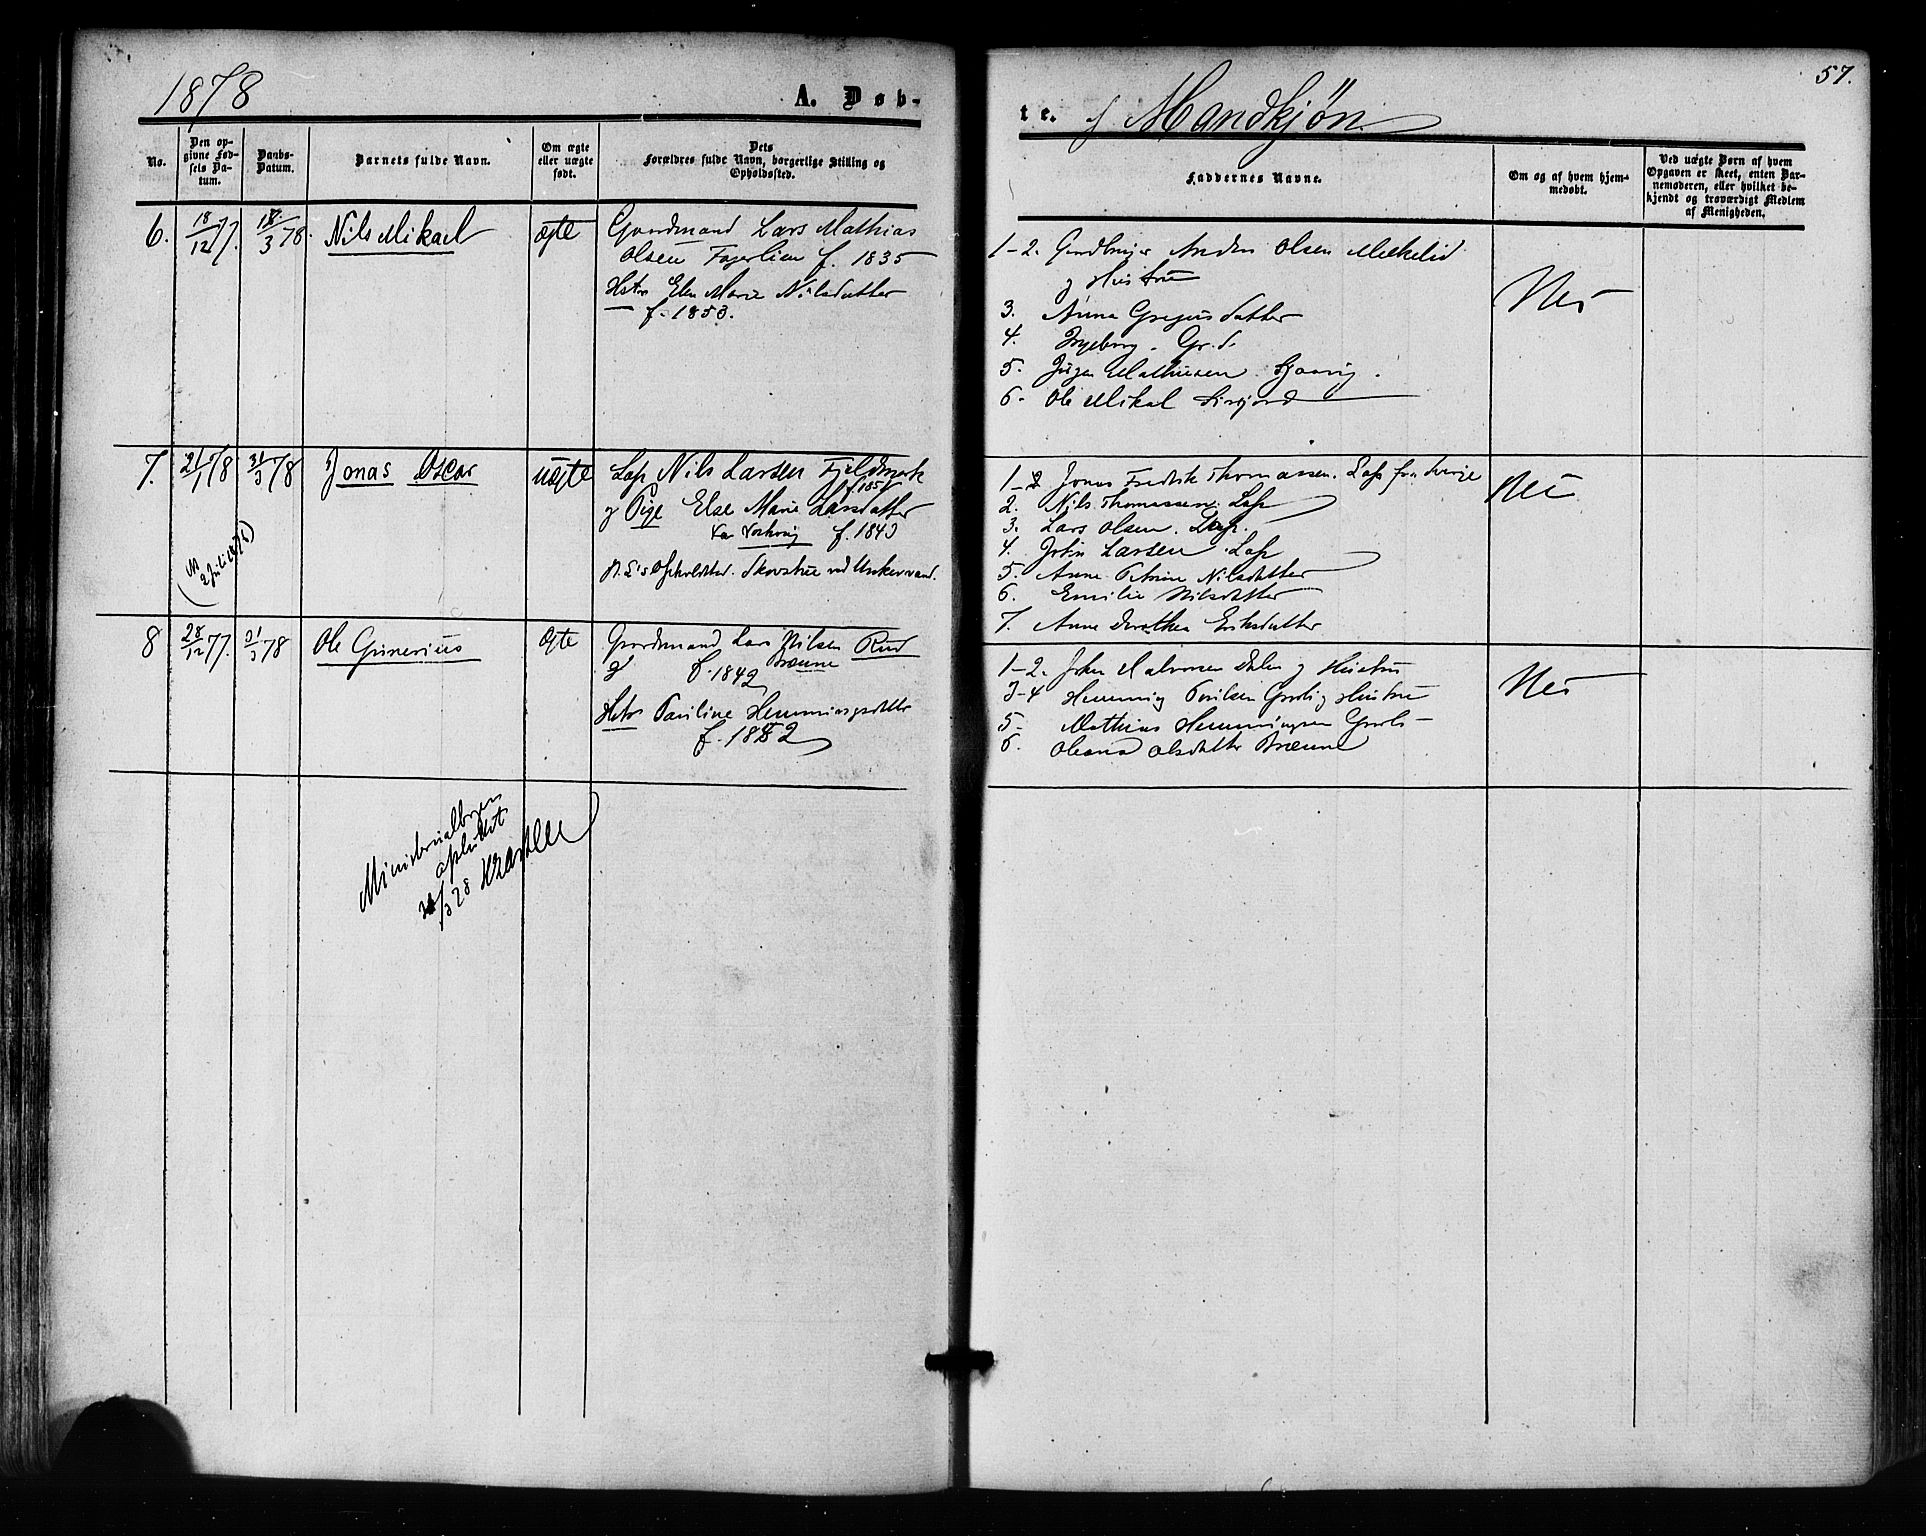 1878
A. Døb-
te. af Mandkjøn.
57.
No.
Den op-
givne Fød-
sels Da-
tum.
Daabs-
Datum.
Barnets fulde Navn.
Om ægte
eller uægte
født.
Dets
Forældres fulde Navn, borgerlige Stilling og
Opholdssted.
Faddernes Navne.
Om og af hvem hjem-
medøbt.
Ved uægte Børn af hvem
Opgaven er skeet, enten Bar-
nemoderen, eller hvilket be-
kjendt og troværdigt Medlem
af Menigheden.
6. 18/12 77. 18/3 78. Nils Mikael ægte Gaardmand Lars Mathias
Olsen Fagerlien f. 1835
Hstr Elen Marie Nilsdatter
f. 1853.
1-2. Anders Olsen
og Hustru
3. Anna Gregersdatter
4. Ingeborg Gr.d.
5. Mathisen
6. Ole Mikal
Nei
7. 21/1 78 31/3 78 Jonas Oscar uægte Lap Nils Larsen Fjeldmark
og Pige Else Marie Larsdatter
f. 1843
Opholdsted. ved Unkervand.
1- Jonas Fredrik Thomassen. Lap fra Sverige
2. Nils Thomassen. Lap
3. Lars Olsen. Lap.
4. John Larsen Lap
5. Anne Petrine Nilsdatter
6. Emilie Nilsdatter
7. Anne Dorothea Eriksdatter
Nei
8 28/12 77. 31/3 78 Ole Gunerius ægte Gaardmand Lars Nilsen Rud
og f. 1842 Brænne
Hstr Pauline Hemmingsdatter
f. 1852
1-2. John Halvorsen Dalen og Hustru
3-4 Hemming Paulsen og Hustru
5- Mathias Hemmingsen
6. Oleana Olsdatter Brænne
Nei
Ministerialbogen
afsluttet
31/3 78